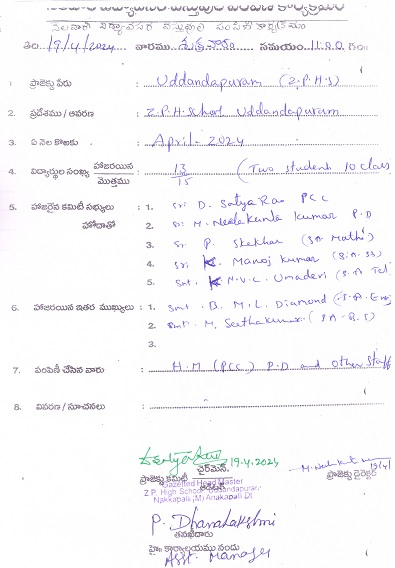 నెలవారీ విద్యావసర వస్తువుల పంపిణీ కార్యక్రమం
తేది. 19/4/2024 వారము. శుక్రవారం సమయం. 11.00 గం॥
1. ప్రాజెక్టు పేరు : Uddandapuram (Z.P.H.S)
2. ప్రదేశము / ఆవరణ : Z.P.H.School Uddandapuram
3. ఏ నెల కొఱకు : April - 2024
4. విద్యార్థుల సంఖ్య హాజరయిన / మొత్తము : 13/15 (Two student 10 class
5. హాజరైన కమిటీ సభ్యులు : 1. Sri D. Satya Rao PCC
హోదాతో 2. Sri M. Neelakanta Kumar P.D
3. Sr P. Shekhar (SA Maths)
4. Sri K. Manoj Kumar (S.A. SS)
5. Smt. K N.V.L. Umadevi (S.A Tel
6. హాజరయిన ఇతర ముఖ్యులు : 1. Smt. B. M.L. Diamond (S.A. Eng
2. Smt. M. Seethakumari (SA - B.S)
3.
7. పంపిణీ చేసిన వారు : H.M (PCC) P.D and other Staff
8. వివరణ / సూచనలు :
19.4.2024
19/4/
ప్రాజెక్టు కమిటీ చైర్మెన్. ప్రాజెక్టు డైరెక్టర్
Gazetted Head Master
Z.P. High School, Uddandapuram
Nakkapalli (M) Anakapalli Dt
P. Dhanalakshmi
తనఖీదారు
హై॥ కార్యాలయము నందు
Asst. Manager